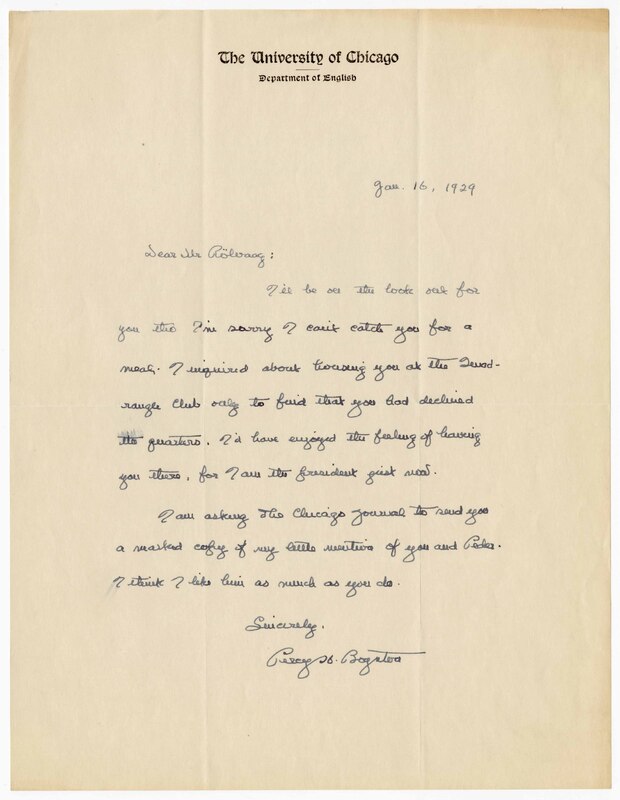 The University of Chicago
Department of English
Jan. 16, 1929
Dear Mr Rölvaag:
I'll be on the look out for
you tho I'm sorry I can't catch you for a
meal. I inquired about housing you at the Quad-
rangle Club only to find that you had declined
the quarters. I'd have enjoyed the feeling of having
you there, for I am the president just now.
I am asking The Chicago Journal to send you
a marked copy of my little mention of you and Peder.
I think I like him as much as you do.
Sincerely,
Percy H. Boynton